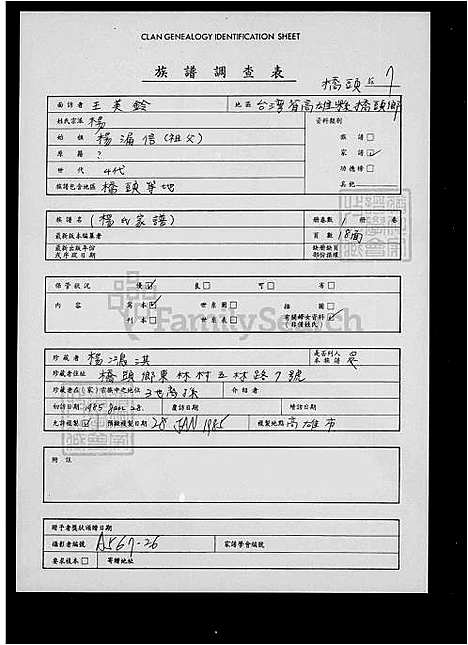 CLAN GENEALOGY IDENTIFICATION SHEET
族譜調查表
橋頭 7
面訪者 王美鈴 地區 台灣省高雄縣橋頭鄉
姓氏宗派 楊 資料類別
始祖 楊漏信(祖父) 族譜□
原籍 ? 家譜☑
世代 4代 功德榜□
族譜包含地區 橋頭等地 其他
族譜名 (楊氏家譜) 冊卷數 1 冊 卷
最新版本編纂者 頁數 18面
最新出版年份或序跋日期 缺冊缺頁部份操裡
保管狀況 優☑ 良□ 可□ 有□
內容 寫本☑ 世系圖□ 插圖□
刊本□ 世系表□ 有關婦女資料☑(非僅姓氏)
FamilySearch
珍藏者 楊鴻淇 是否列入本族譜 是
珍藏者住址 橋頭鄉東林村五林路7號
珍藏者在(家)宗族中之地位 3世裔孫 介紹者
初訪日期 1985 28 覆訪日期 增訪日期
允許複製☑ 預繳複製日期 28 JAN 1985 複製地點 高雄市
附註
贈予者獎狀頒贈日期
攝影者編號 A567-26 家譜學會編號
要求複本□ 寄贈地址